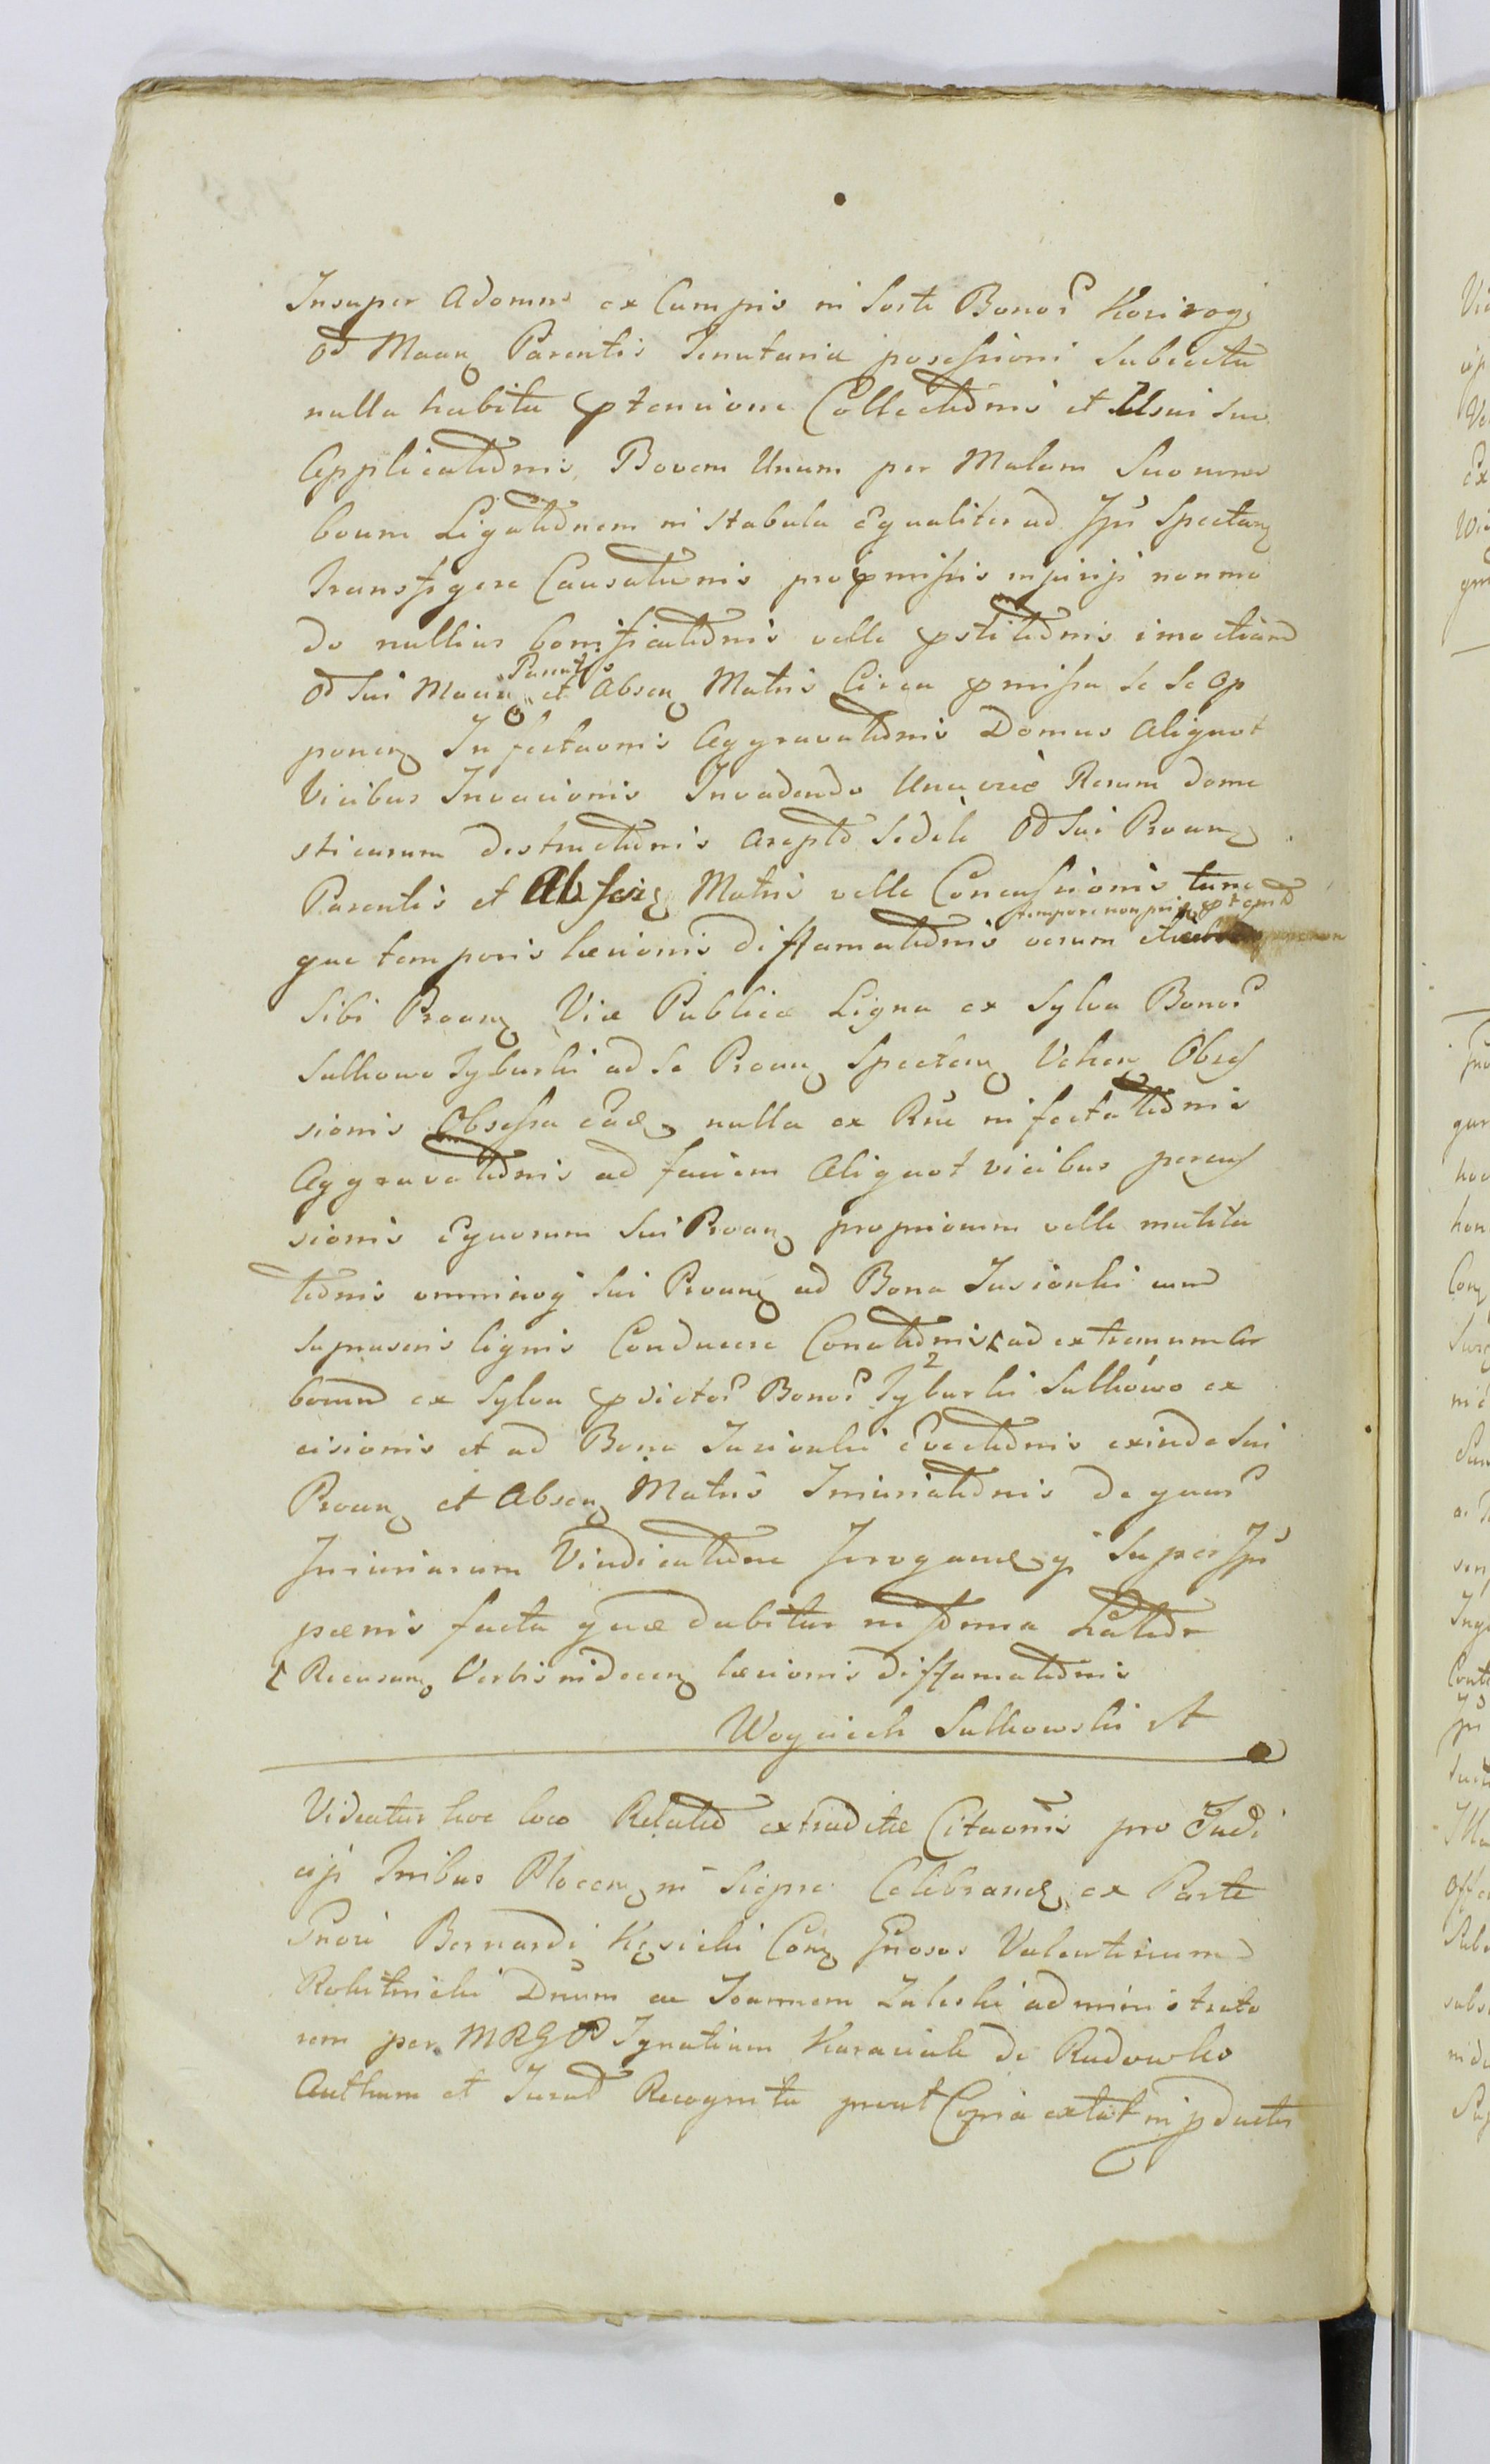 Insuper Adomus ex Campis in Sorte Bonor Kosirogi
od Maan Parentis Tenutaria posessioni Subiecta
nulla habita ptensione Collectionis et Usui suo
Applicationis, Bovem Unum per Malam Suorum
boum Ligationem in Stabula Equaliter ad Ips Spectan
Transfigere Causationis pro pmissis injurijs nonmo
do nullius bonificationis velle pstitionis imo etiam
od sui Maan Parentis et Absen Matris Circa pmissa se se op
ponen Infectaonis Aggravationis Domus Aliquot
Vicibus Invacionis Invadendo Unacum Rerum dome
sticarum destructionis arepto Sedele od sui Proan
Parentis et Absen Matris velle Concussionis tunc
tempore non
que temporis læsionis diffamationis verum
Sibi Proan Viæ Publicæ Ligna ex Sylva Bonor
Sulkowo Tyburki ad se Proan Spectan Vehen Obses
sionis Obsessa ead nulla ex Rne infectationis
Aggravationis ad faciem Aliquot vicibus percus
sionis Equorum Sui Proan propriorum velle mutila
tionis omninoq Sui Proan ad Bona Jasionki cum
suprascris lignis Conducere Conationis ad extremum Ar
borum ex Sylva pdictor Bonor Tyburki 2 Sulkowo ex
cisionis et ad Bona Jasionki Evectionis exinde Sui
Proan et Absen Matris Iniuriationis de quar
Iniuriarum Vindicatione Irrogand q Super Ips
pœnis facta quæ dabitur in forma Latior
Recusan Verbis indecen læsionis diffamationis
Woyciech Sulkowski A
Videatur hoc loco Relatio extraditæ Citaonis pro Judi
cijs Tribus Plocen in Sieprc Celebrand ex Parte
Gnosi Bernardi Kęsicki Con Gnosos Valentinum
Rokitnicki Dnum ac Joannem Zaleski administrato
rem per MRGP Ignatium Karaciak de Radowko
Authum et Jurat Recognita prout Copia extat in pductis